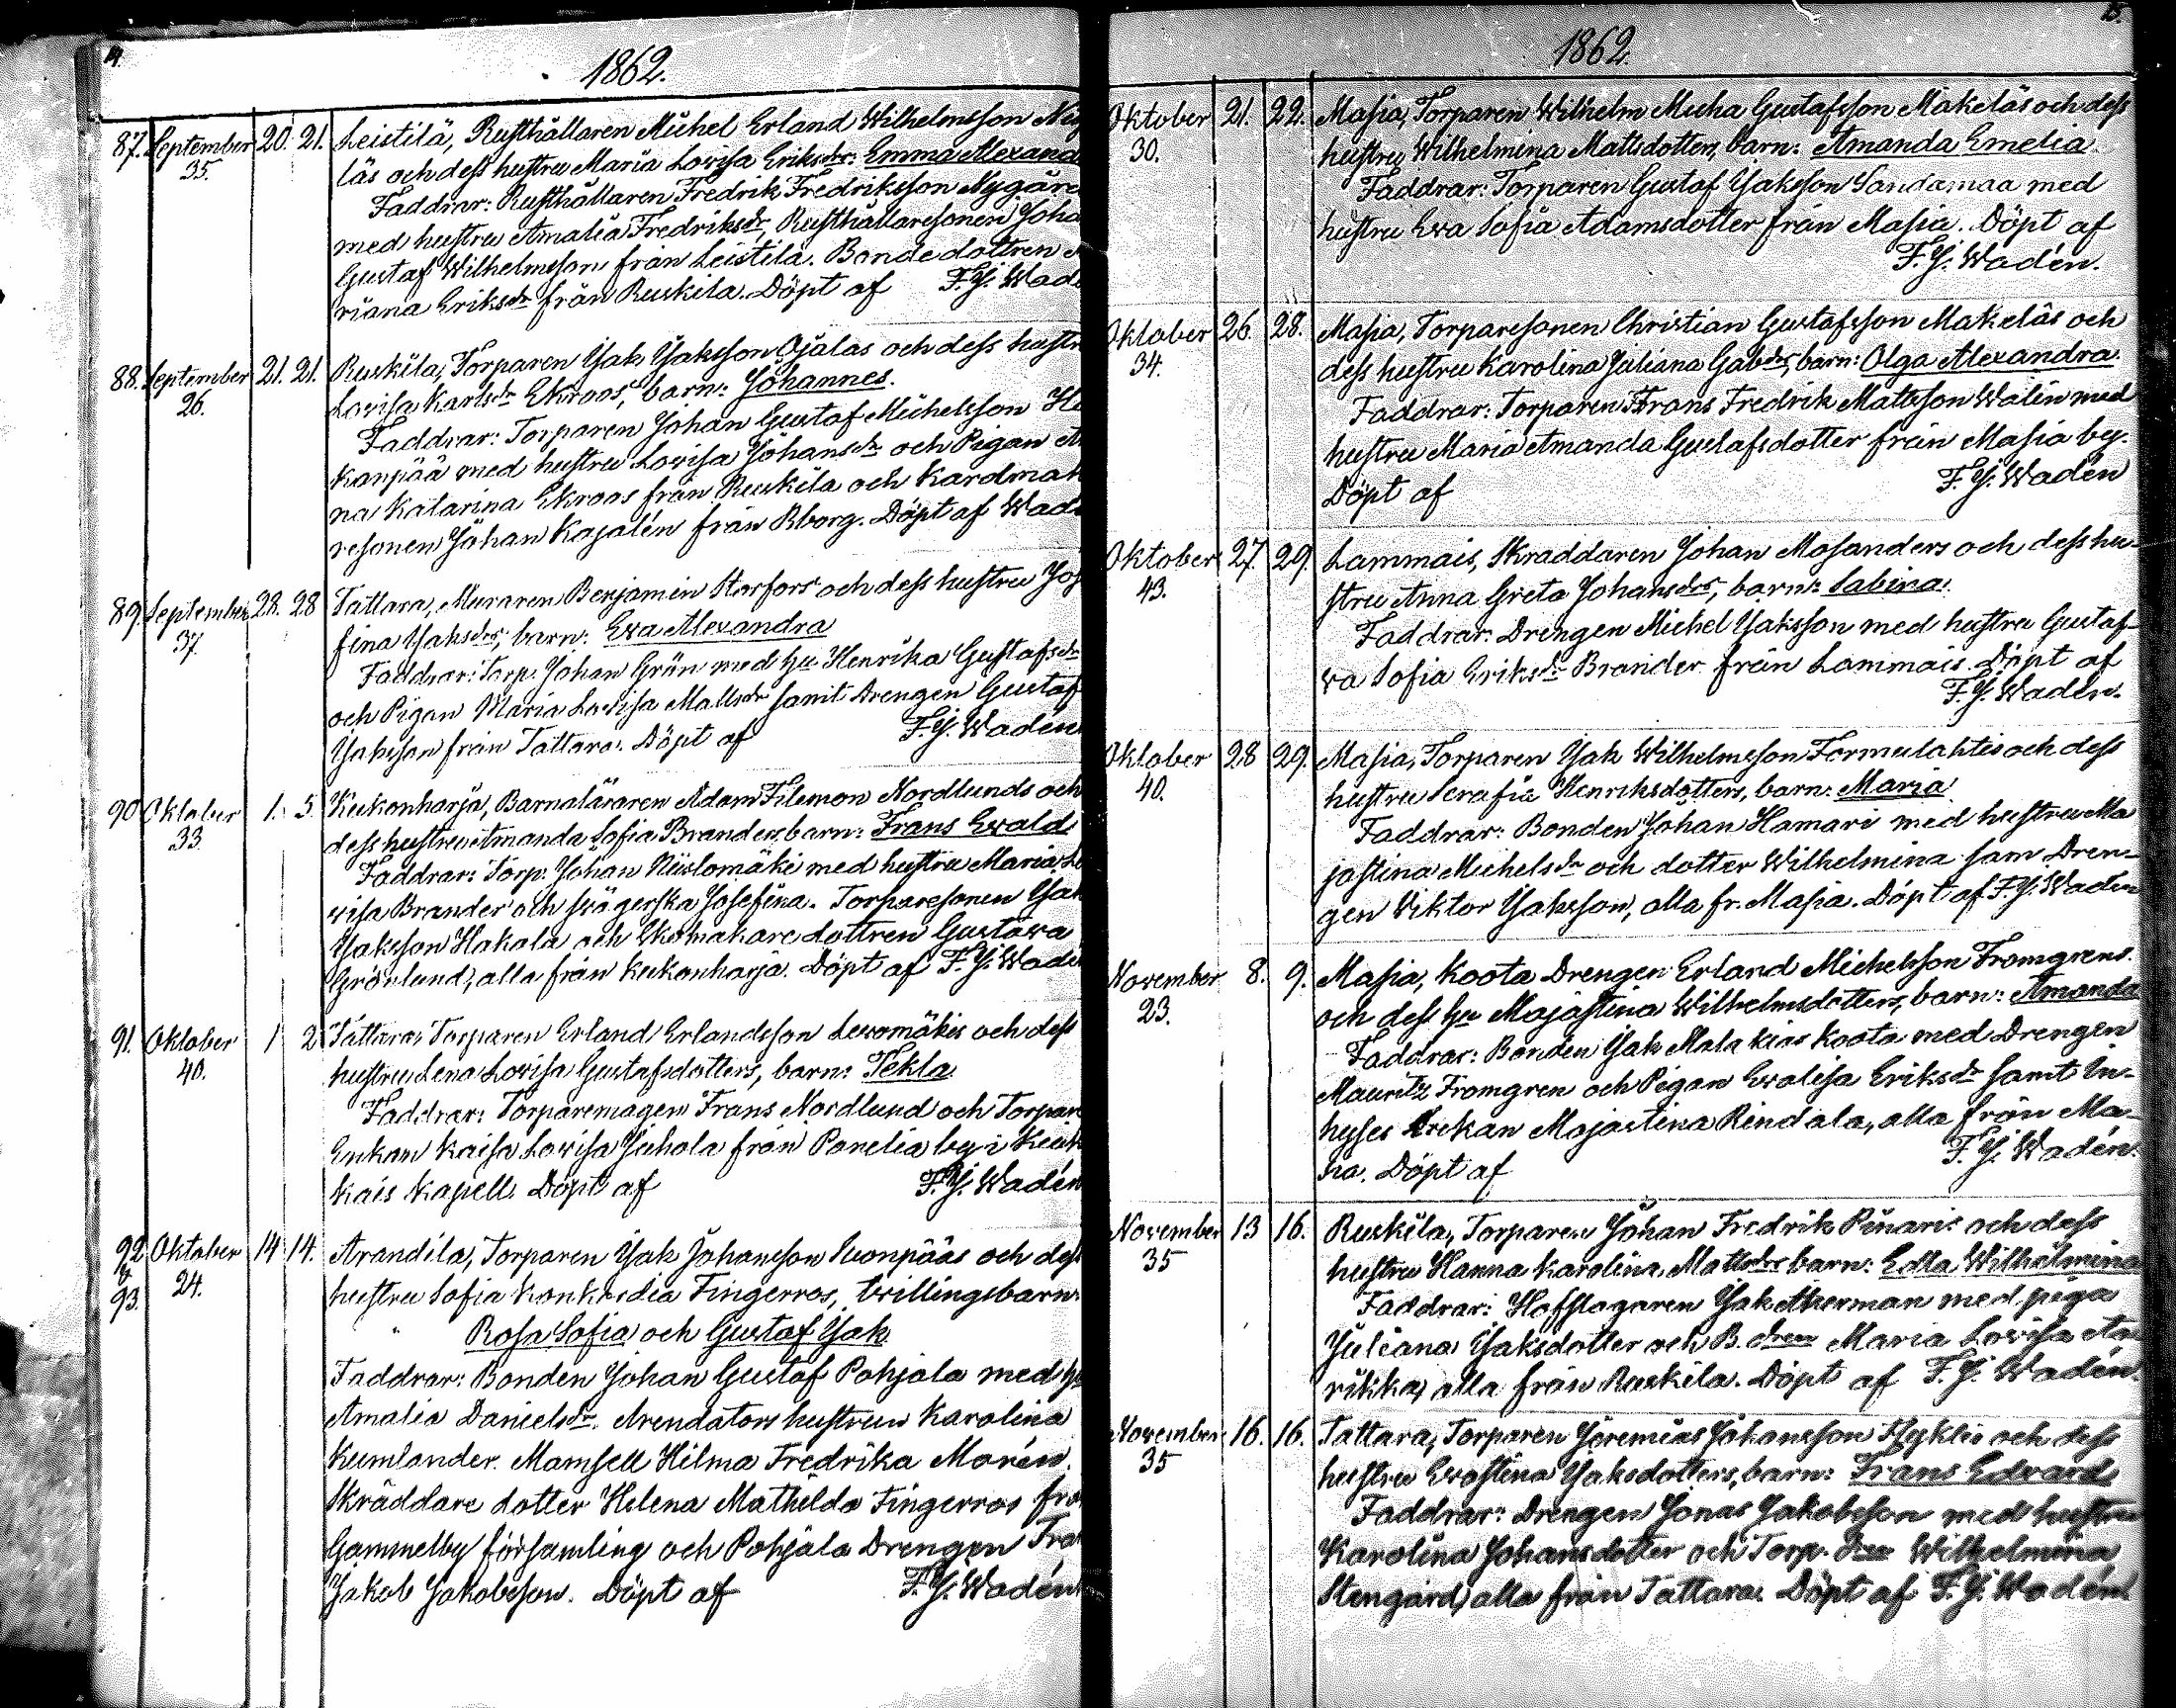 14.
1862.
87. September 20. 21. Leistilä, Rusthållaren Michel Erland Wilhelmsson
35. läs och dess hustru Maria Lovisa Eriksdrs: Emma Alexand
Faddrar: Rusthållaren Fredrik Fredriksson Nygård
med hustru Amalia Fredriksdr, Rusthållaresonen Joha
Gustaf Wilhelmsson från Leistilä. Bonde dottren
riana Eriksdr från Ruskila. Döpt af F.J. Wad
88. September 21. 21. Ruskila, Torparen Jak Jaksson Ojalas och dess hustru
26. Lovisa Karlsdr Ekroos, barn: Johannes.
Faddrar: Torparen Johan Gustaf Michelsson
kanpää med hustru Lovisa Johansdr och Pigan
na Katarina Ekroos från Ruskila och Kardmak
resonen Johan Kajalén från Bborg. Döpt af Wad
89. September 28. 28 Tattara, Muraren Benjamin Storfors och dess hustru Jos
37 fina Jaksdrs, barn: Eva Alexandra
Faddrar: Torp. Johan Grön med hu Henrika Gustafsdr
och Pigan Maria Lovisa Mattsdr samt Drengen Gustaf
Jaksson från Tattara. Döpt af F.J. Wadén
90 Oktober 1. 5. Kukonharja, Barnaläraren Adam Filemon Nordlunds och
33. dess hustru Amanda Sofia Branders, barn: Frans Evald
Faddrar: Torp. Johan Niuslomäki med hustru Maria Lo
visa Brander och svägerska Josefina. Torparesonen Jak
Jaksson Hakala och Skomakare dottren Gustava
Grönlund, alla från Kukonharja. Döpt af F.J. Wadé
91. Oktober 1 2 Tattara, Torparen Erland Erlandsson Levomäkis och dess
40. hustru Lena Lovisa Gustafsdotters, barn: Tekla
Faddrar: Torparemågen Frans Nordlund och Torpare
Enkan Kaisa Lovisa Juhola från Panelia by i Kiuk
kais Kapell. Döpt af F.J. Wadén
92 Oktober 14 14. Arandila, Torparen Jak Johansson Suonpääs och dess
& 24. hustru Sofia Konkordia Fingerroos, tvillingsbarn:
93. Rosa Sofia och Gustaf Jak
Faddrar: Bonden Johan Gustaf Pohjala med hu
Amalia Danielsdr. Arendators hustrun Karolina
Kumlander. Mamsell Hilma Fredrika Morén.
Skräddare dotter Helena Mathilda Fingerroos frå
Gammelby församling och Pohjala Drengen Fra
Jakob Jakobsson. Döpt af F.J. Wadén
15.
1862.
Oktober 21. 22. Masia, Torparen Wilhelm Micha Gustafsson Mäkeläs och dess
30. hustru Wilhelmina Mattsdotters, barn: Amanda Emelia
Faddrar: Torparen Gustaf Jaksson Sandamaa med
hustru Eva Sofia Adamsdotter från Masia. Döpt af
F.J. Wadén.
Oktober 26. 28. Masia, Torparesonen Christian Gustafsson Makeläs och
34. dess hustru Karolina Juliana Gabdrs, barn: Olga Alexandra.
Faddrar: Torparen Frans Fredrik Mattsson Walin med
hustru Maria Amanda Gustafsdotter från Masia by.
Döpt af F.J. Wadén
Oktober 27. 29. Lammais, Skräddaren Johan Mosanders och dess hu-
43. stru Anna Greta Johansdrs, barn: Sabina.
Faddrar: Drengen Michel Jaksson med hustru Gusta-
va Sofia Eriksdr Brander från Lammais. Döpt af
F.J. Wadén.
Oktober 28 29. Masia, Torparen Jak Wilhelmsson Tormulahtis och dess
40. hustru Serafia Henriksdotters, barn: Maria
Faddrar: Bonden Johan Hamari med hustru Ma
jastina Michelsdr och dotter Wilhelmina sam Dren-
gen Viktor Jaksson, alla fr. Masia. Döpt af F.J. Wadén
November 8. 9. Masia, Koota Drengen Erland Michelsson Fromgrens.
23. och dess hu Majastina Wilhelmsdotters, barn: Amanda
Faddrar: Bonden Jak Malakias Koota med Drengen
Mauritz Fromgren och Pigan Evalisa Eriksdr samt In-
hyses Enkan Majastina Rindala, alla från Ma-
sia. Döpt af F.J. Wadén.
November 13 16. Ruskila, Torparen Johan Fredrik Pinaris och dess
35 hustru Hanna Karolina Mattsdrs barn: Edla Wilhelmina
Faddrar: Hofslagaren Jak Akerman med piga
Juliana Jaksdotter och B. dren Maria Lovisa
alla från Ruskila. Döpt af F.J. Wadén.
November 16. 16. Tattara, Torparen Jeremias Johansson Nyklis och dess
35 hustru Evastina Jaksdotters, barn: Frans Edvard
Faddrar: Drengen Jonas Jakobsson med hustru
Karolina Johansdotter och Torp. dren Wilhelmina
Stengård, alla från Tattara. Döpt af F.J. Wadén